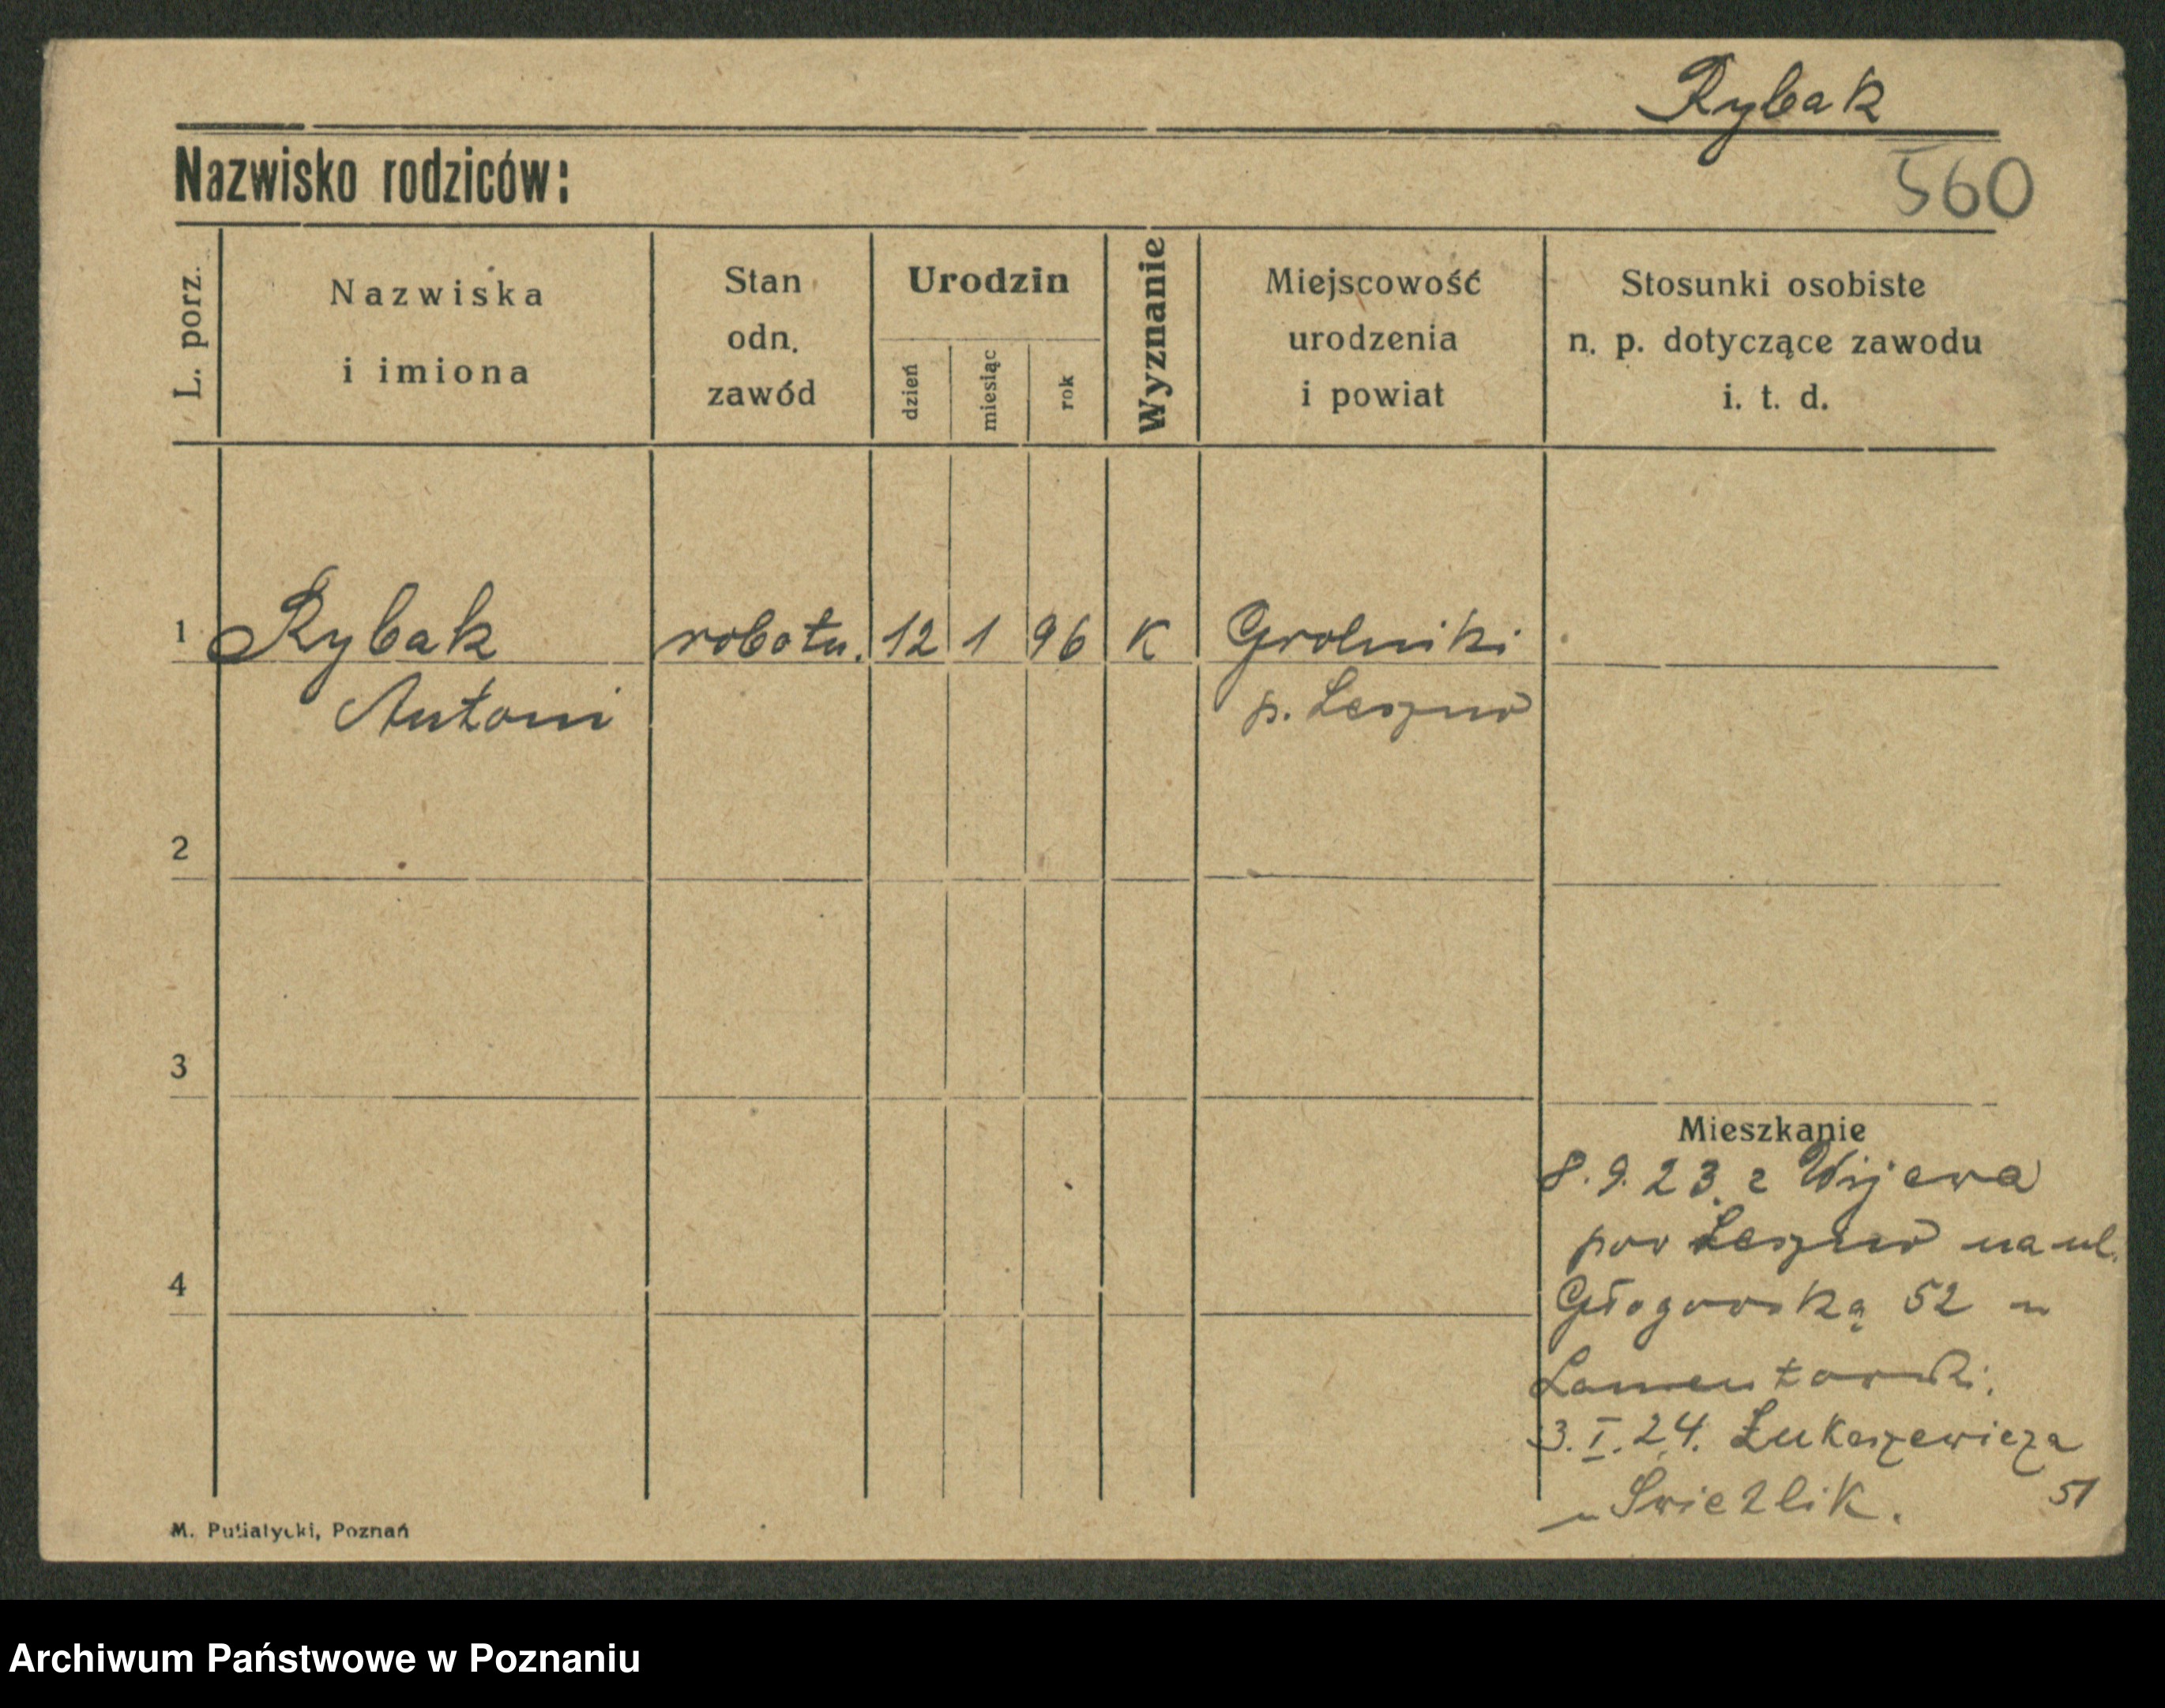 Rybak
Nazwisko rodziców:
560
L. porz.
Nazwiska
i imiona
Stan
odn.
zawód
Urodzin
dzień
miesiąc
rok
Wyznanie
Miejscowość
urodzenia
i powiat
Stosunki osobiste
n. p. dotyczące zawodu
i. t. d.
1 Rybak robotn. 12 1 96 K Grotniki
Antoni p. Leszno
2
3
4
Mieszkanie
8.9.23. z Wijewa
pow Leszno na ul.
Głogowską 52 u
3.I.24. Łukaszewicza
51
u
M. Putiatycki, Poznań
Archiwum Państwowe w Poznaniu